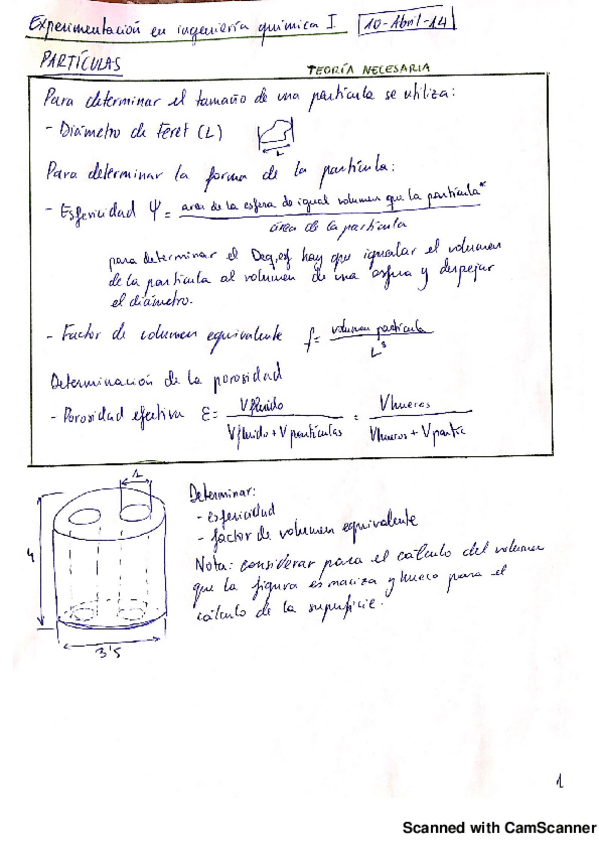 Experimentación en ingeniería química I 10-Abril-14
PARTÍCULAS
TEORÍA NECESARIA
Para determinar el tamaño de una partícula se utiliza:
- Diámetro de Feret (L)
L
Para determinar la forma de la partícula:
- Esfericidad Ψ = area de la esfera de igual volumen que la partícula*
área de la partícula
para determinar el Deq,esf hay que igualar el volumen
de la partícula al volumen de una esfera y despejar
el diámetro.
- Factor de volumen equivalente f = volumen partícula
L³
Determinación de la porosidad
- Porosidad efectiva Ɛ = Vfluido = Vhuecos
Vfluido + Vpartículas Vhuecos + Vpartic
1
4
3'5
Determinar:
- esfericidad
- factor de volumen equivalente
Nota: considerar para el cálculo del volumen
que la figura es maciza y hueco para el
cálculo de la superficie.
1
Scanned with CamScanner